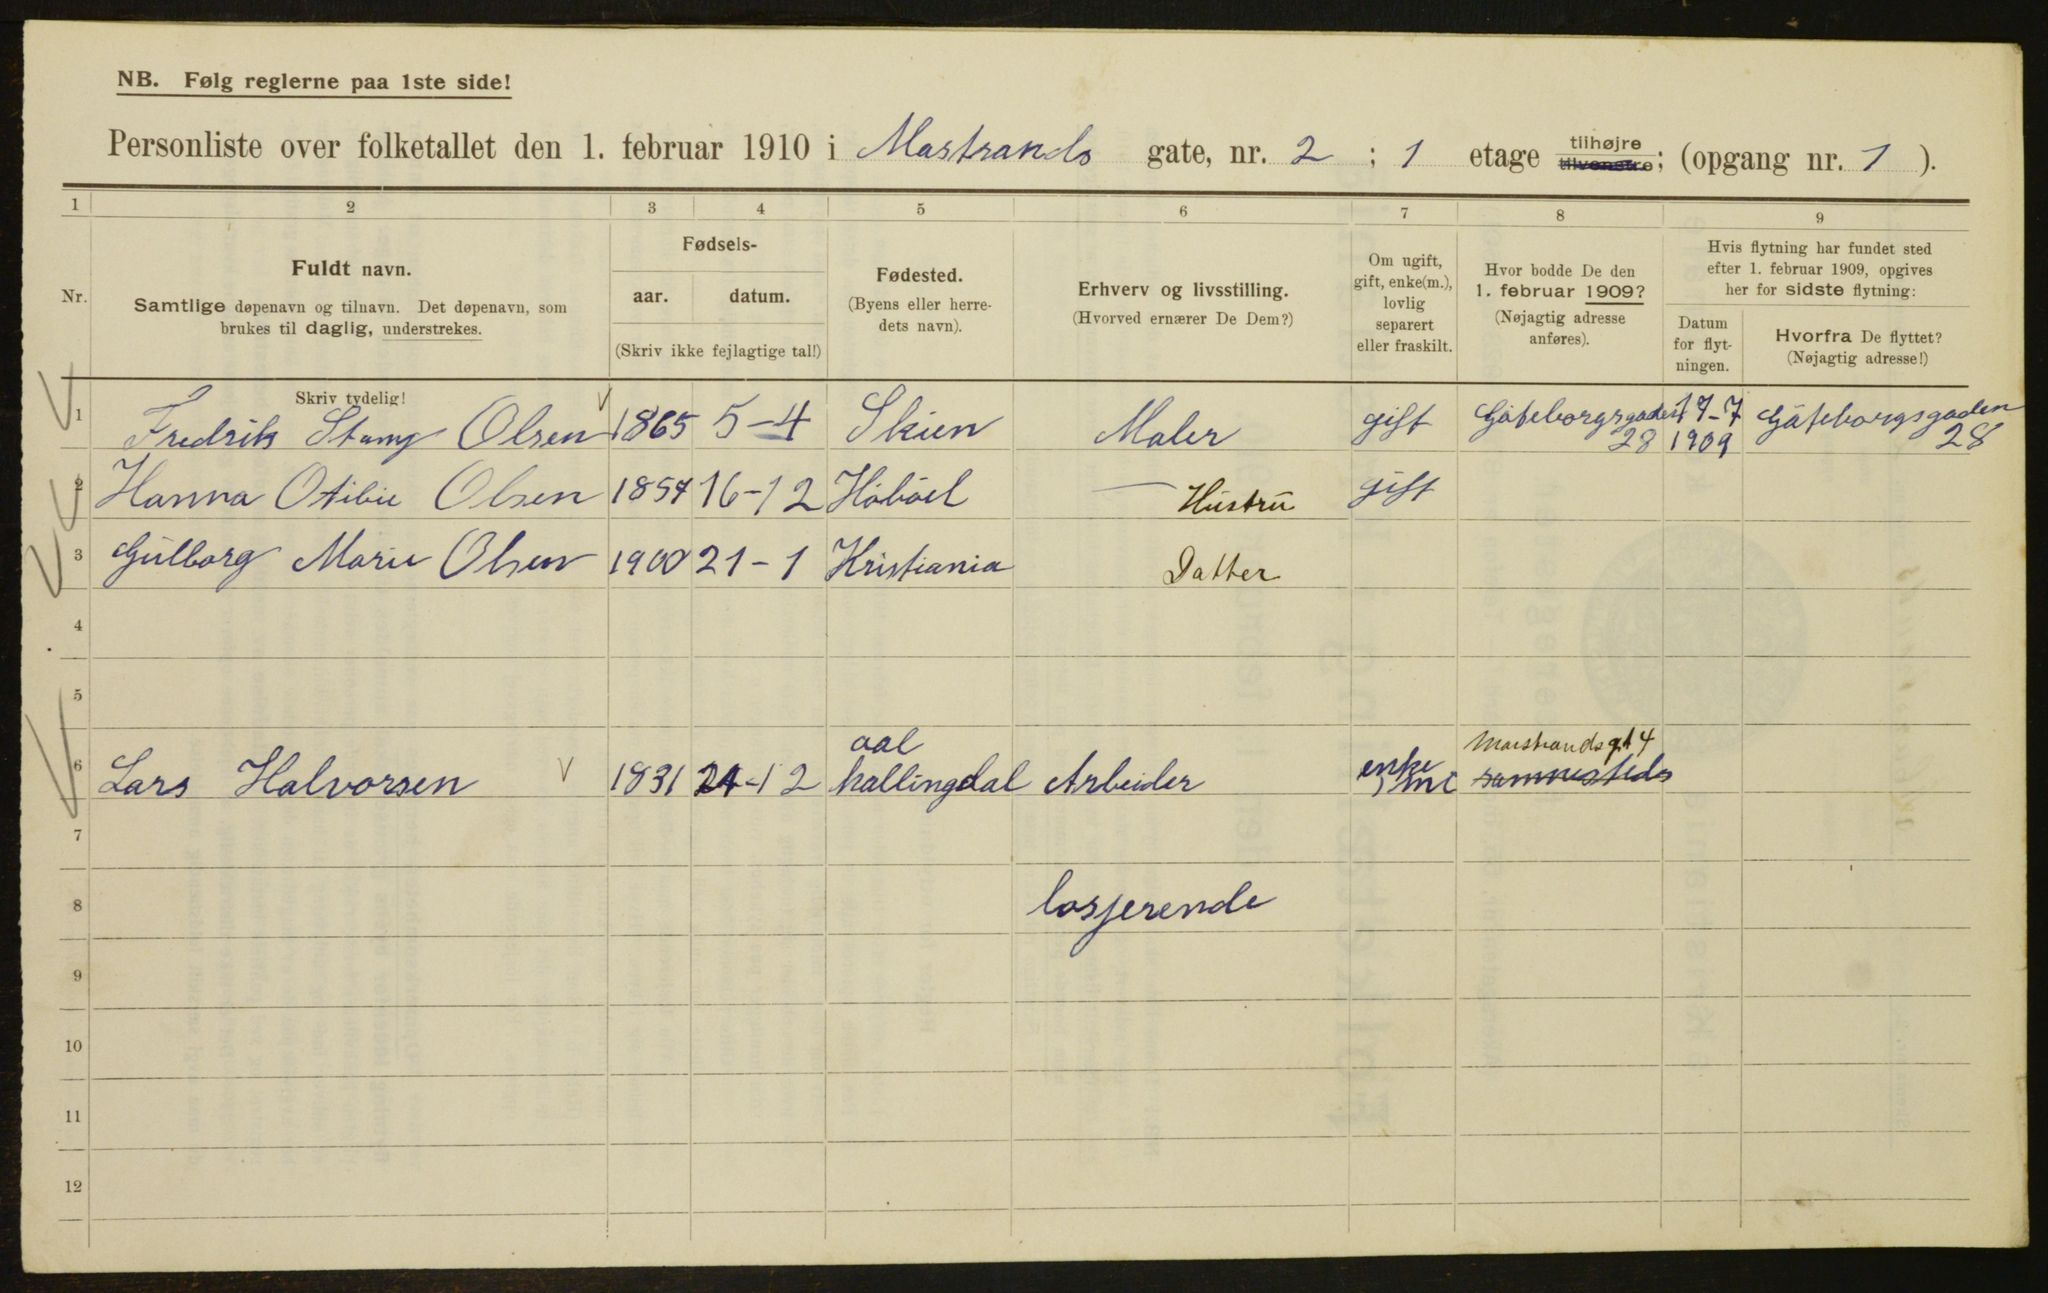 NB. Følg reglerne paa 1ste side!
Personliste over folketallet den 1. februar 1910 i Mastrands gate, nr. 2 ; 1 etage tilhøjre tilvenstre; (opgang nr. 1 ).
1 2 3 4 5 6 7 8 9
Nr.
Fuldt navn.
Samtlige døpenavn og tilnavn. Det døpenavn, som
brukes til daglig, understrekes.
Fødsels-
aar. datum.
(Skriv ikke fejlagtige tal!)
Fødested.
(Byens eller herre-
dets navn).
Erhverv og livsstilling.
(Hvorved ernærer De Dem?)
Om ugift,
gift, enke(m.),
lovlig
separert
eller fraskilt.
Hvor bodde De den
1. februar 1909?
(Nøjagtig adresse
anføres).
Hvis flytning har fundet sted
efter 1. februar 1909, opgives
her for sidste flytning:
Datum
for flyt-
ningen.
Hvorfra De flyttet?
(Nøjagtig adresse!)
Skriv tydelig!
1 Fredrik Olsen 1865 5-4 Skien Maler gift Gøteborgsgaden 28 17-7 1909 Gøteborgsgaden 28
2 Hanna Otilie Olsen 1857 16-12 Høbøel — Hustru gift
3 Gulborg Marie Olsen 1900 21-1 Kristiania Datter
4
5
6 Lars Halvorsen 1831 24-12 aal hallingdal Arbeider enke Marstrandsgt 4 sammesteds
7
8 losjerende
9
10
11
12